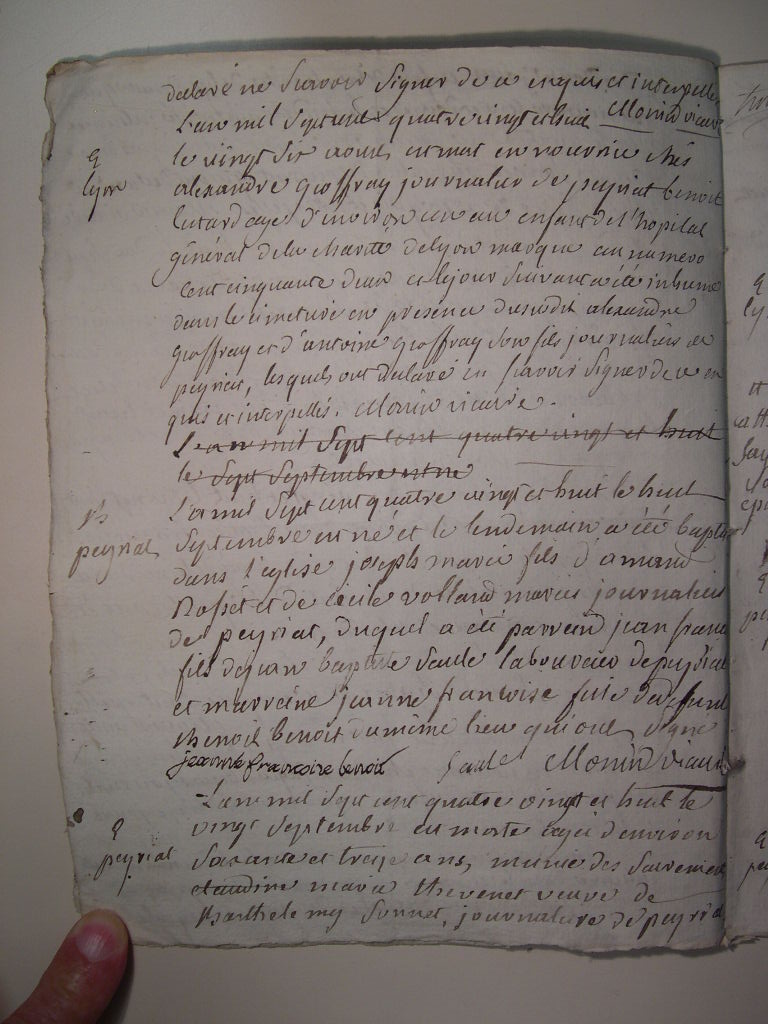 declaré ne Scavoir Signer de ce enquis et interpellé
L'an mil Sept cent quatre vingt et huit Monin vicaire
le vingt Six aoust est mort en nourrice chés
S
lyon
alexandre Geoffray journalier de peyriat benoit
agé d'environ un an enfant de l'hopital
général de la charité de lyon marqué au numero
cent cinquante deux et le jour Suivant a été inhumé
dans le cimetiere en presence dusudit alexandre
Geoffray et d'antoine Geoffray Son fils journaliers de
peyriat, lesquels ont declaré ne Scavoir Signer de ce en
quis et interpellés. Monin vicaire.
L'an mil Sept cent quatre vingt et huit
le Sept Septembre est né
L'an mil Sept cent quatre vingt et huit le huit
B
peyriat
Septembre est né et le lendemain a été baptisé
dans l'eglise joseph marie fils d'amand
Rosset et de cecile volland mariés journaliers
de peyriat, duquel a été parrein jean francois
fils de jean baptiste Saule laboureur de peyriat
et marreine jeanne francoise fille de defunt
benoit du même lieu qui ont Signé
jeanne francoise benoit Saule Monin vicaire
L'an mil Sept cent quatre vingt et huit le
S
peyriat
vingt Septembre est morte agée d'environ
Soixante et treize ans, munie des Sacremens
claudine marie thevenet veuve de
Barthelemy Sonnet, journaliere de peyriat